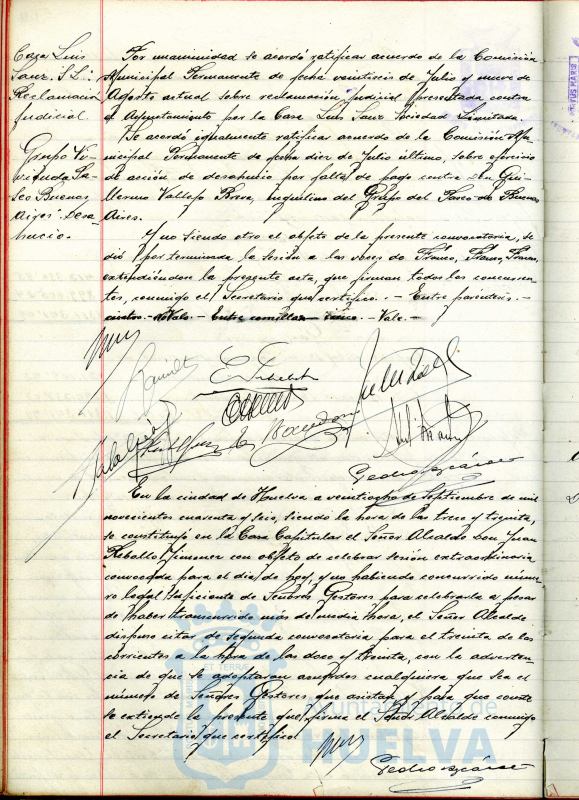 Casa Luis
Sanz. S.L.:
Reclamación
Judicial.
Por unanimidad se acordó ratificar acuerdo de la Comisión
Municipal Permanente de fecha veintiseis de Julio y nueve de
Agosto actual sobre reclamación judicial presentada contra
el Ayuntamiento por la Casa Luis Sanz Sociedad Limitada.
Grupo Vi-
vienda Pa-
seo Buenos
Aires. Desa-
hucio.
Se acordó igualmente ratificar acuerdo de la Comisión Mu-
nicipal Permanente de fecha diez de Julio último, sobre ejercicio
de acción de desahucio por falta de pago contra Don Gui-
llermo Vallejo inquilino del Grupo del Paseo de Buenos
Aires.
Y no siendo otro el objeto de la presente convocatoria, se
dió por terminada la sesión a las voces de Franco, Franco, Franco,
extendiéndose la presente acta, que firman todos los concurren-
tes, conmigo el Secretario que certifico. - Entre paréntesis. -
cuatro. - no Vale. - Entre comillas - cinco. - Vale. -
En la ciudad de Huelva a veintiocho de Septiembre de mil
novecientos cuarenta y seis, siendo la hora de las trece y treinta,
se constituyó en la Casa Capitular el Señor Alcalde Don Juan
Rebollo Jimenez con objeto de celebrar sesión extraordinaria
convocada para el día de hoy, y no habiendo concurrido núme-
ro legal suficiente de Señores Gestores para celebrarla a pesar
de haber transcurrido más de media hora, el Señor Alcalde
dispuso citar de segunda convocatoria para el treinta de los
corrientes a la hora de las doce y treinta, con la adverten-
cia de que se adoptaran acuerdos cualquiera que sea el
número de Señores Gestores que asistan y para que conste
se extiende la presente que firma el Señor Alcalde conmigo
el Secretario que certifico.
Ayuntamiento de
HUELVA